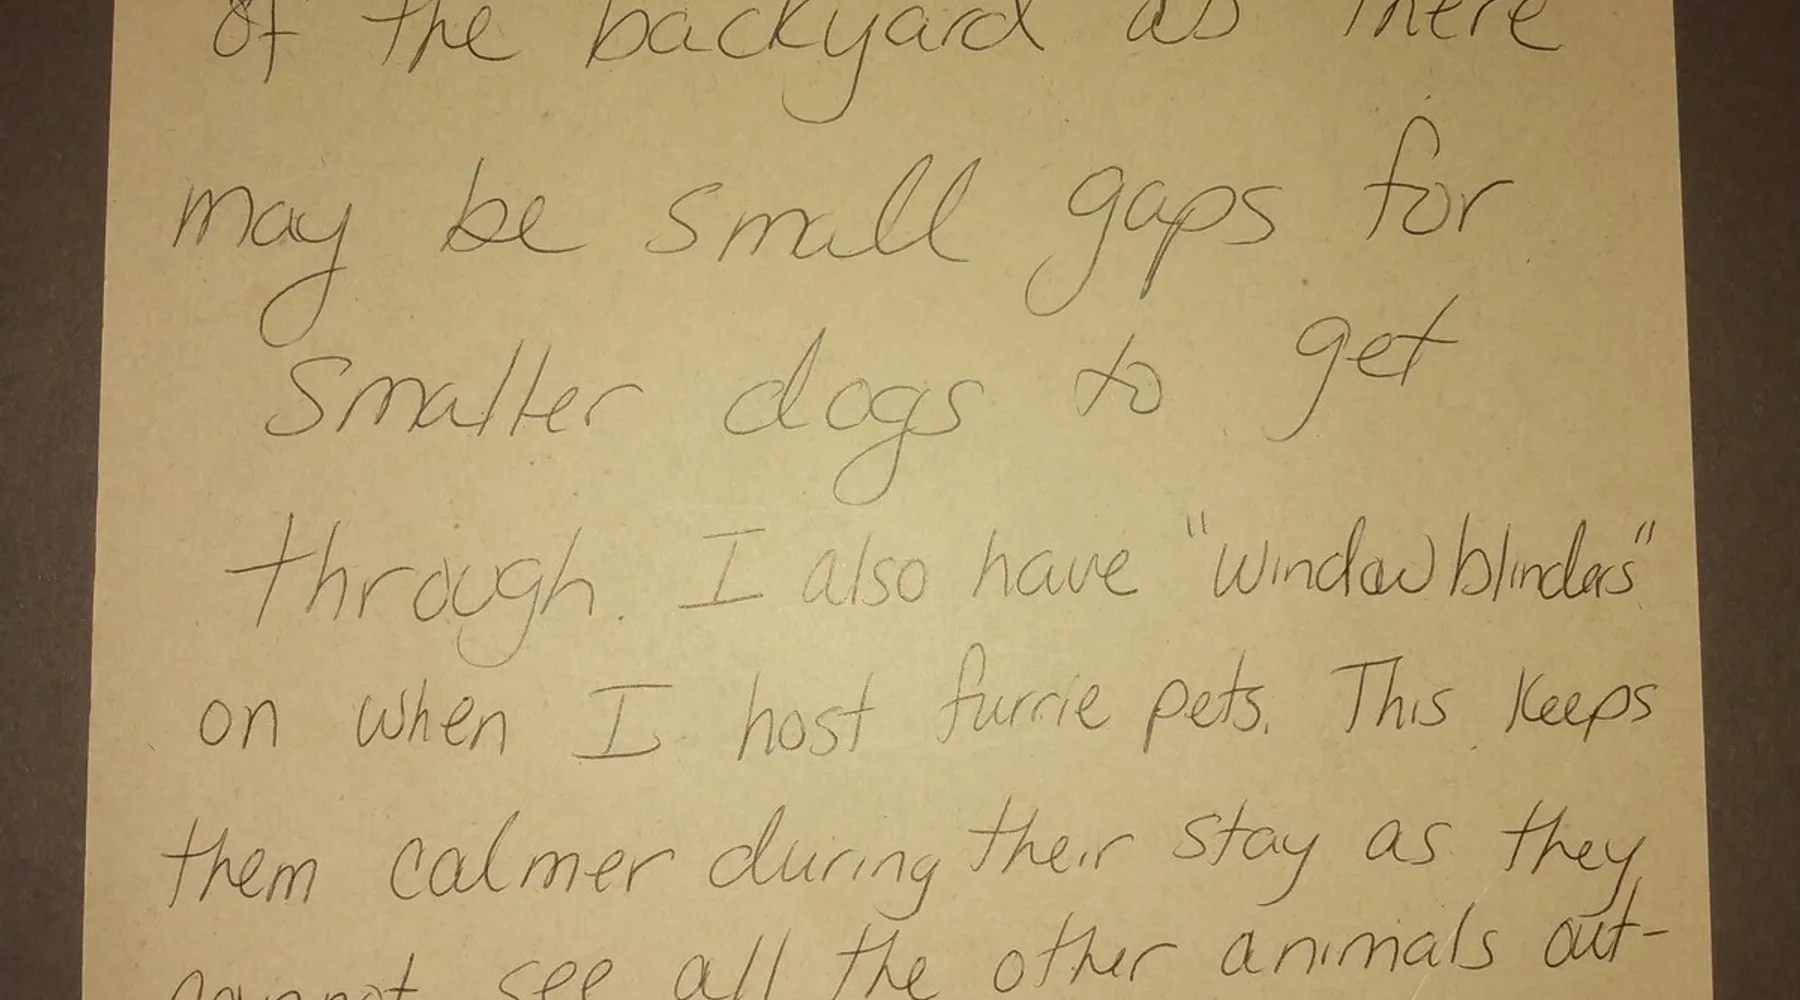 of the backyard as there
may be small gaps for
smaller dogs to get
through. I also have "window blinders"
on when I host furrie pets. This keeps
them calmer during their stay as they
cannot see all the other animals out-